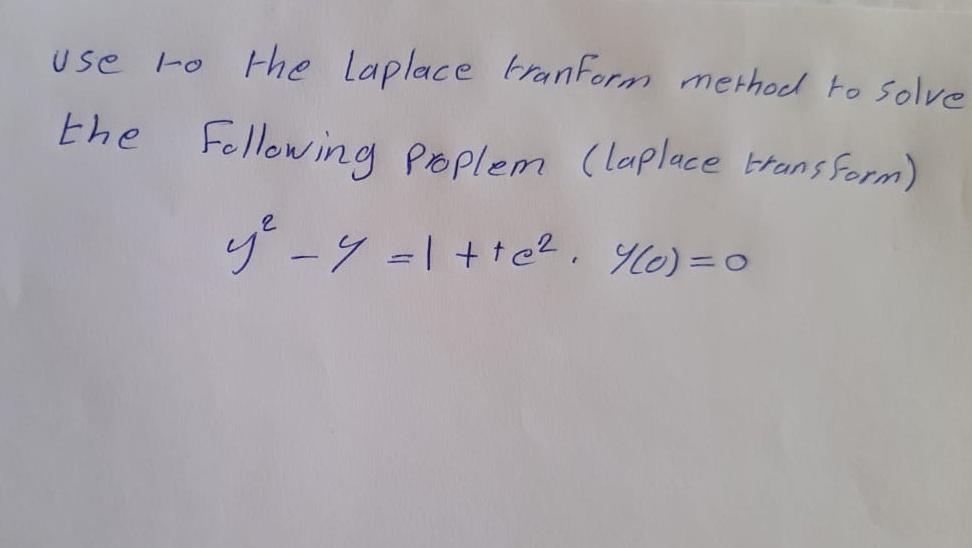 use to the laplace tranform method to solve
the Following proplem (laplace transform)
y² - y = 1 + te². y(0) = 0